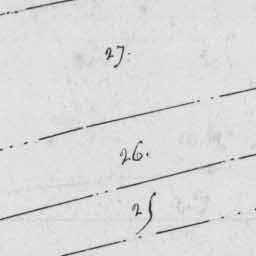 27.
26.
25